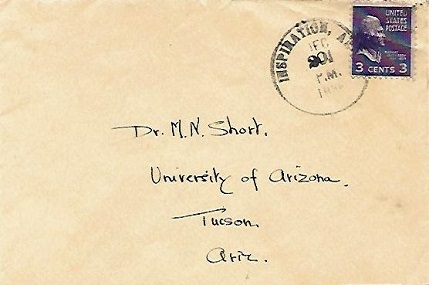 INSPIRATION,
P.M.
UNITED
STATES
POSTAGE
3 CENTS 3
Dr. M. N. Short.
University of Arizona.
Tucson.
Ariz.